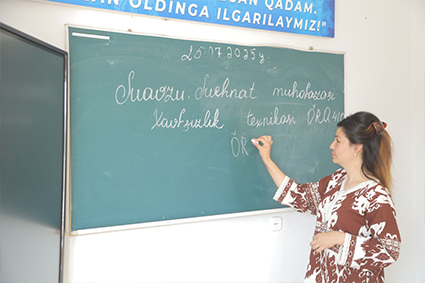 QADAM.
OLDINGA ILGARILAYMIZ!"
25.07.2025y
Mavzu. Mehnat muhofazasi
Xavfsizlik texnikasi ÕRQ
ÕR